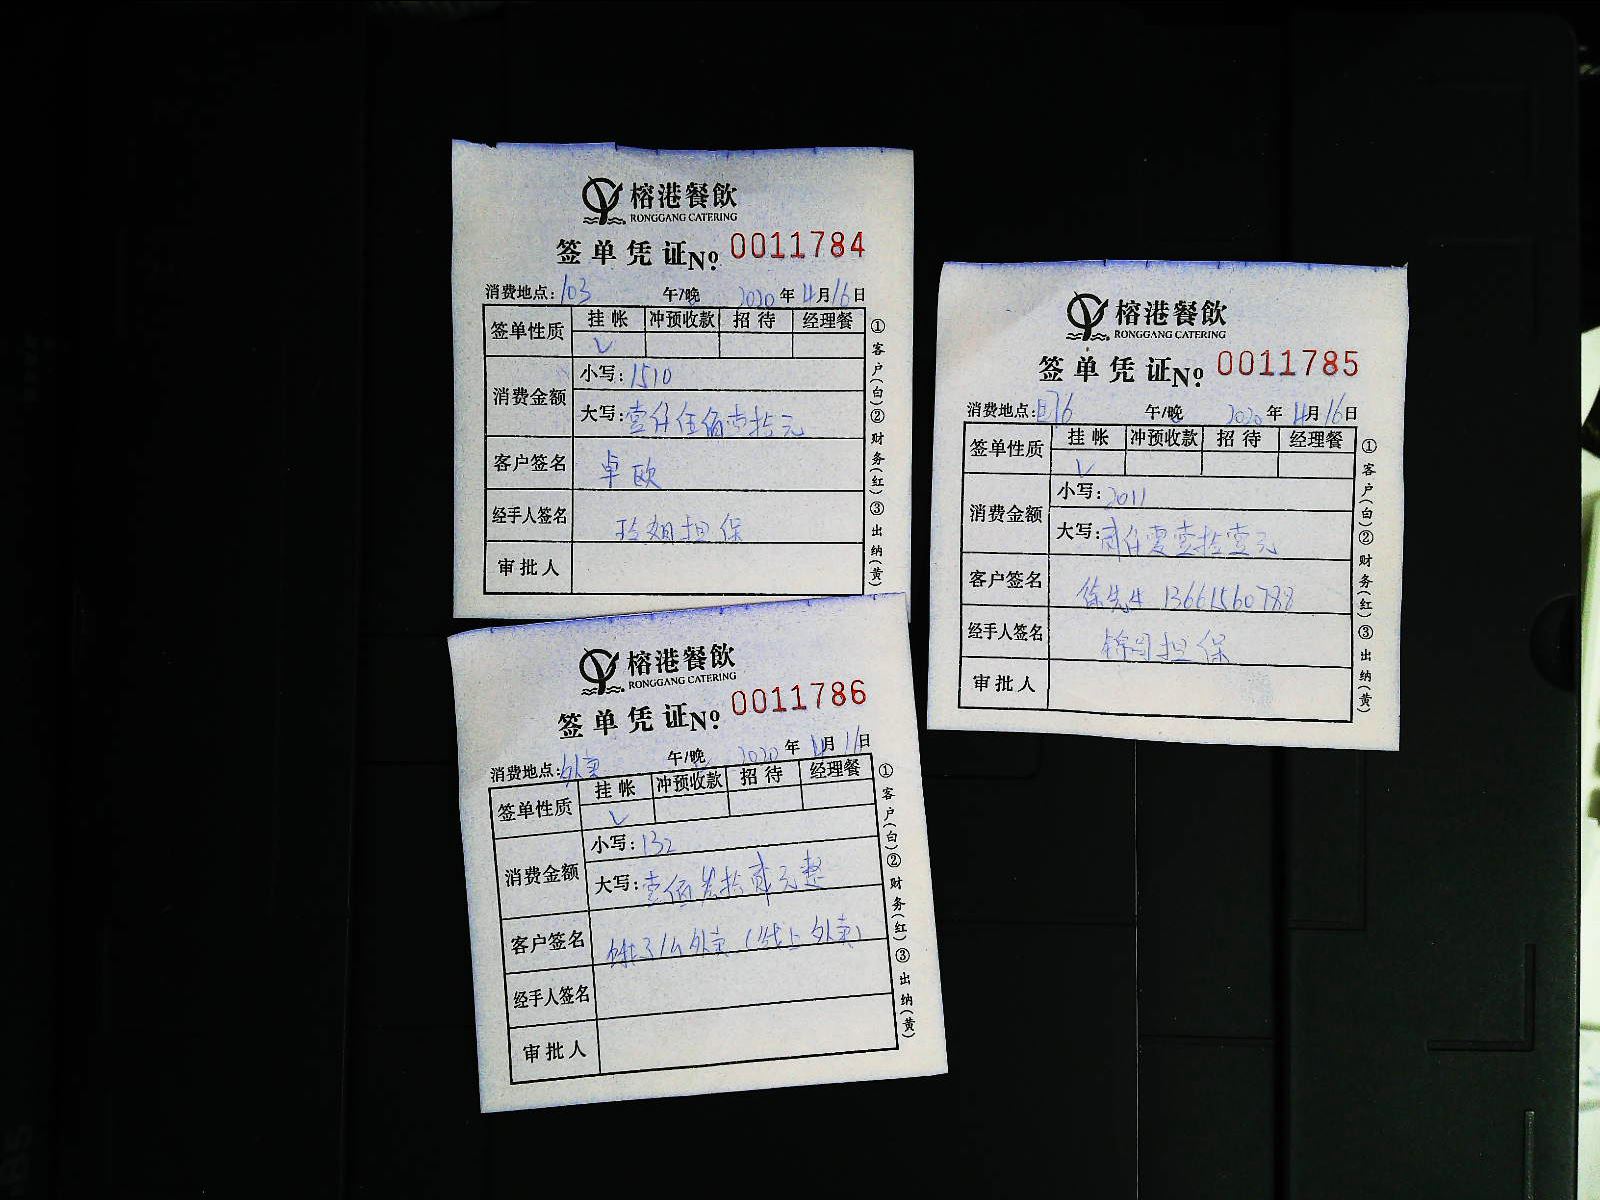 榕港餐飲
RONGGANG CATERING
签单凭证 No. 0011784
消费地点: 103 午/晚 2020年4月16日
签单性质 挂帐 冲预收款 招待 经理餐
✓
消费金额 小写: 1510
大写: 壹仟伍佰壹拾元
客户签名 卓欧
经手人签名 玲姐担保
审批人
①客户(白)②财务(红)③出纳(黄)
榕港餐飲
RONGGANG CATERING
签单凭证 No. 0011785
消费地点: 午/晚 2020年4月16日
签单性质 挂帐 冲预收款 招待 经理餐
✓
消费金额 小写: 2011
大写: 贰仟零壹拾壹元
客户签名 徐先生 13661560788
经手人签名 担保
审批人
①客户(白)②财务(红)③出纳(黄)
榕港餐飲
RONGGANG CATERING
签单凭证 No. 0011786
消费地点: 外卖 午/晚 2020年4月16日
签单性质 挂帐 冲预收款 招待 经理餐
✓
消费金额 小写: 132
大写: 壹佰叁拾贰元整
客户签名 饿了么外卖(线上外卖)
经手人签名
审批人
①客户(白)②财务(红)③出纳(黄)